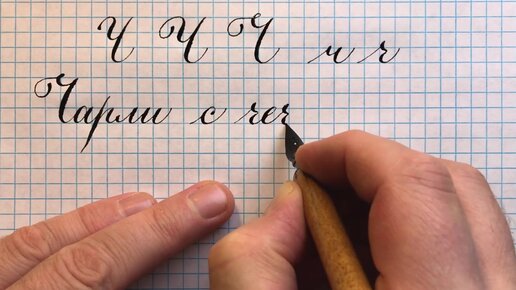 Ч Ч Ч ч ч
Чарли с чеч